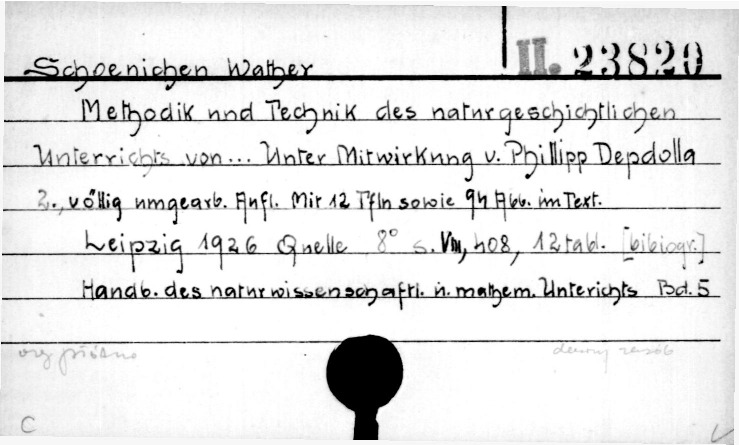 II. 23820
Schoenichen Walther
Methodik und Technik des naturgeschichtlichen
Unterrichts von... Unter Mitwirkung v. Phillipp Depdolla
2., völlig umgearb. Aufl. Mit 12 Tfln sowie 94 Abb. im Text.
Leipzig 1926 Quelle 8° s. VIII, 408, 12 tabl. [bibiogr.]
Handb. des naturwissenschaftl. u. mathem. Unterichts Bd. 5
dawny zasób
C